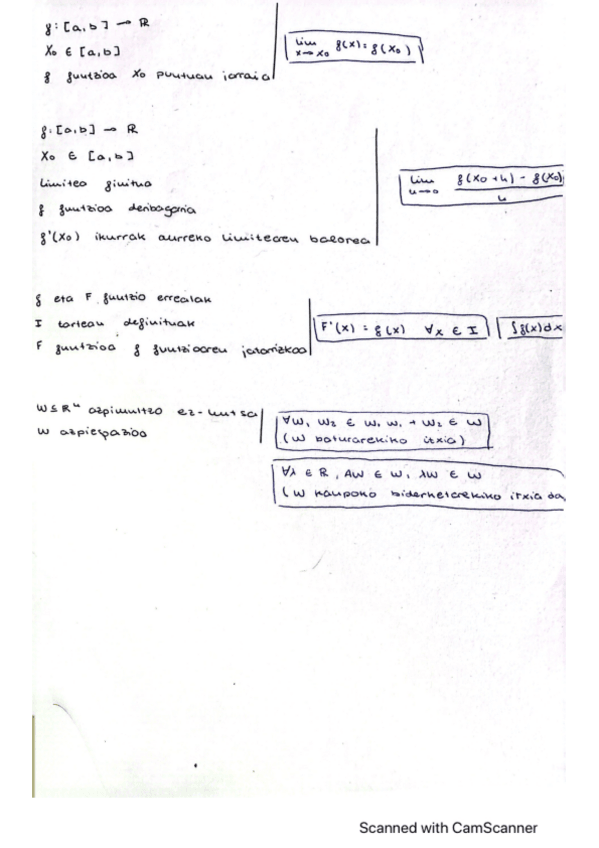 f: [a,b] → R
x₀ ∈ [a,b]
f funtzioa x₀ puntuan jarraia
lim x→x₀ f(x) = f(x₀)
f: [a,b] → R
x₀ ∈ [a,b]
Limitea finitua
f funtzioa deribagarria
f'(x₀) ikurrak aurreko limitearen balorea
lim h→0 f(x₀+h) - f(x₀) / h
f eta F funtzio errealak
I tartean definituak
F funtzioa f funtzioaren jatorrizkoa
F'(x) = f(x) ∀x ∈ I
∫f(x)dx
W ⊆ Rⁿ azpimultzo ez-hutsa
W azpiespazioa
∀w₁ w₂ ∈ W, w₁ + w₂ ∈ W
(W baturarekiko itxia)
∀λ ∈ R, ∀w ∈ W, λw ∈ W
(W kanpoko biderketarekiko itxia da,
Scanned with CamScanner